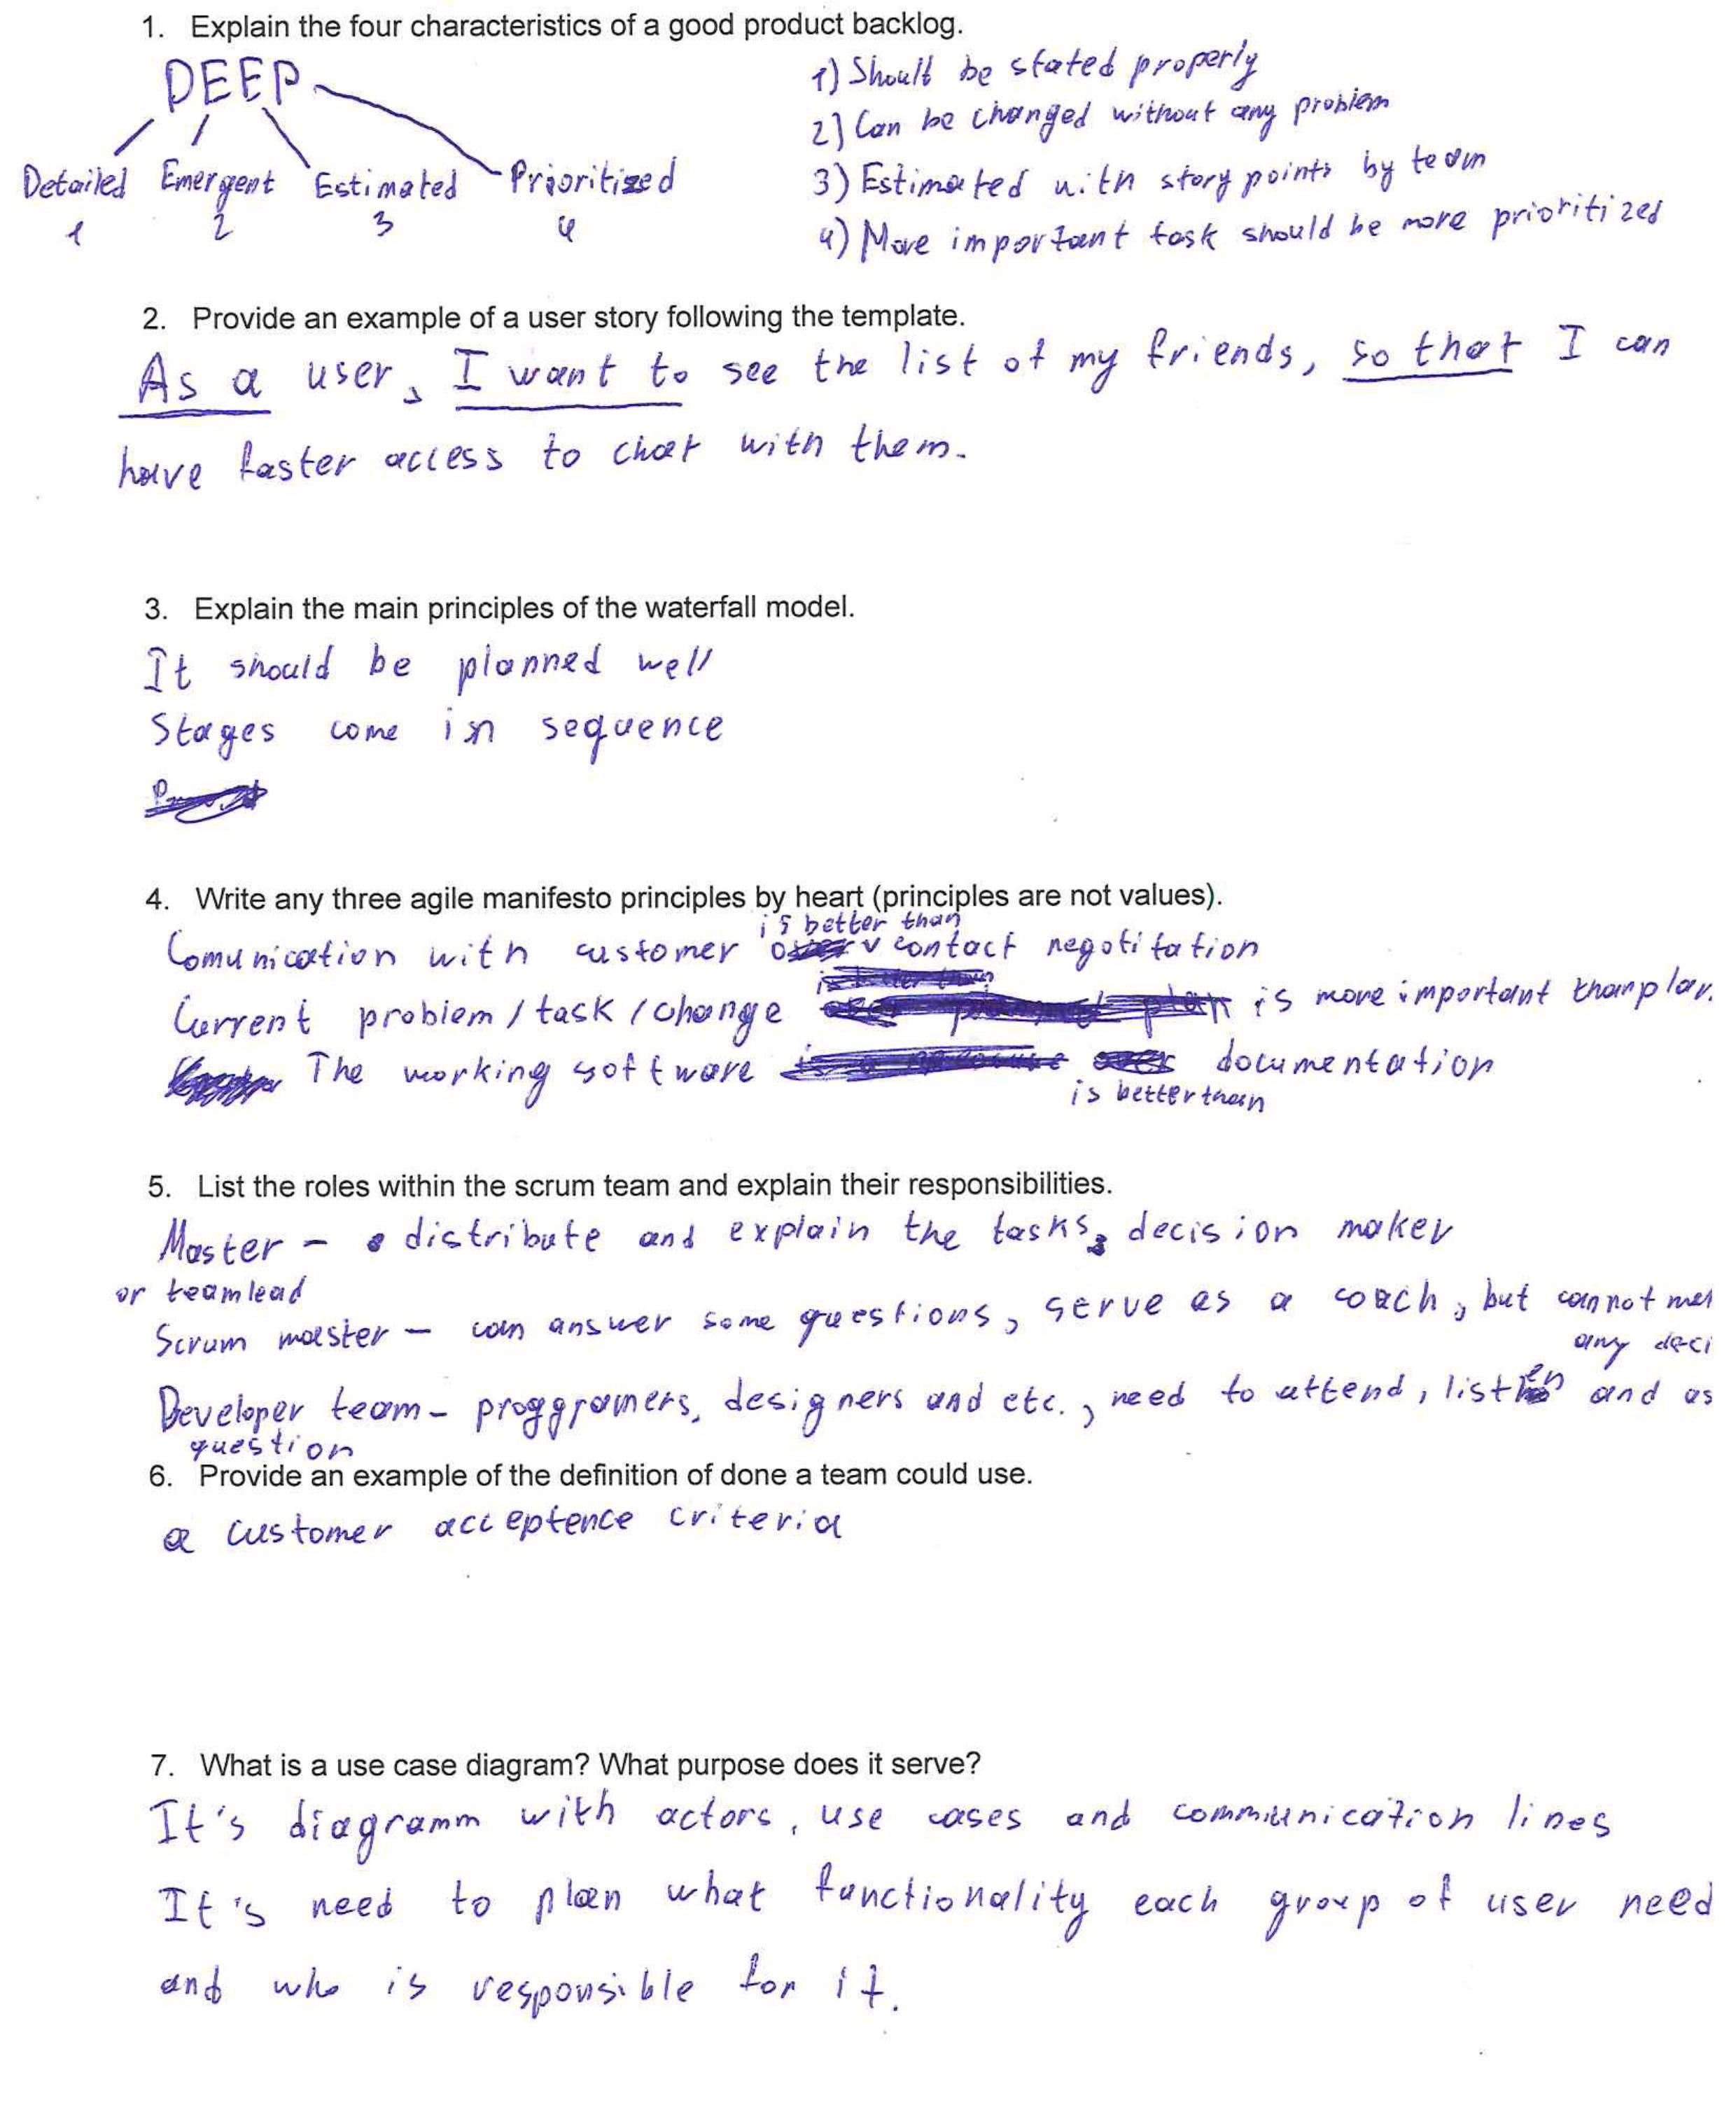 1. Explain the four characteristics of a good product backlog.
DEEP
Detailed Emergent Estimated Prioritized
1 2 3 4
1) Should be stated properly
2) Can be changed without any problem
3) Estimated with story points by team
4) More important task should be more prioritized
2. Provide an example of a user story following the template.
As a user, I want to see the list of my friends, so that I can
have faster access to chat with them.
3. Explain the main principles of the waterfall model.
It should be planned well
Stages come in sequence
4. Write any three agile manifesto principles by heart (principles are not values).
is better than
Comunication with customer over contact negotitation
Current problem / task / change plan is more important than plan.
The working software over documentation
is better than
5. List the roles within the scrum team and explain their responsibilities.
Master - distribute and explain the tasks, decision maker
or teamlead
Scrum master - can answer some questions, serve as a coach, but cannot
any deci
Developer team - proggramers, designers and etc., need to attend, listen and as
question
6. Provide an example of the definition of done a team could use.
a customer acceptence criteria
7. What is a use case diagram? What purpose does it serve?
It's diagramm with actors, use cases and communication lines
It's need to plan what functionality each group of user need
and who is responsible for it.